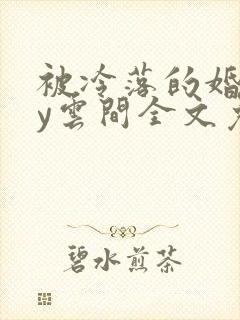 被冷落的婚
y雲間全文
碧水煎茶